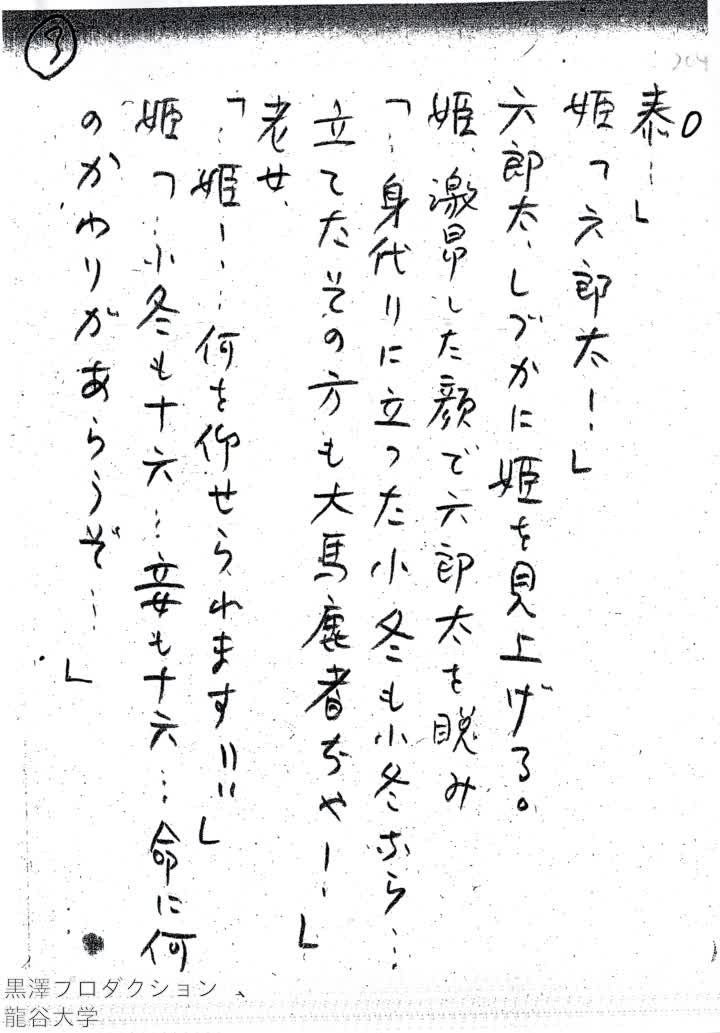 9
204
泰…」
姫「六郎太！」
六郎太、しづかに姫を見上げる。
姫、激昂した顔で六郎太を睨み
「…身代りに立った小冬も小冬なら…
立てたその方も大馬鹿者ぢゃ！」
老女
「…姫！…何を仰せられます!!」
姫「…小冬も十六…妾も十六…命に何
のかわりがあらうぞ…」
黒澤プロダクション
龍谷大学